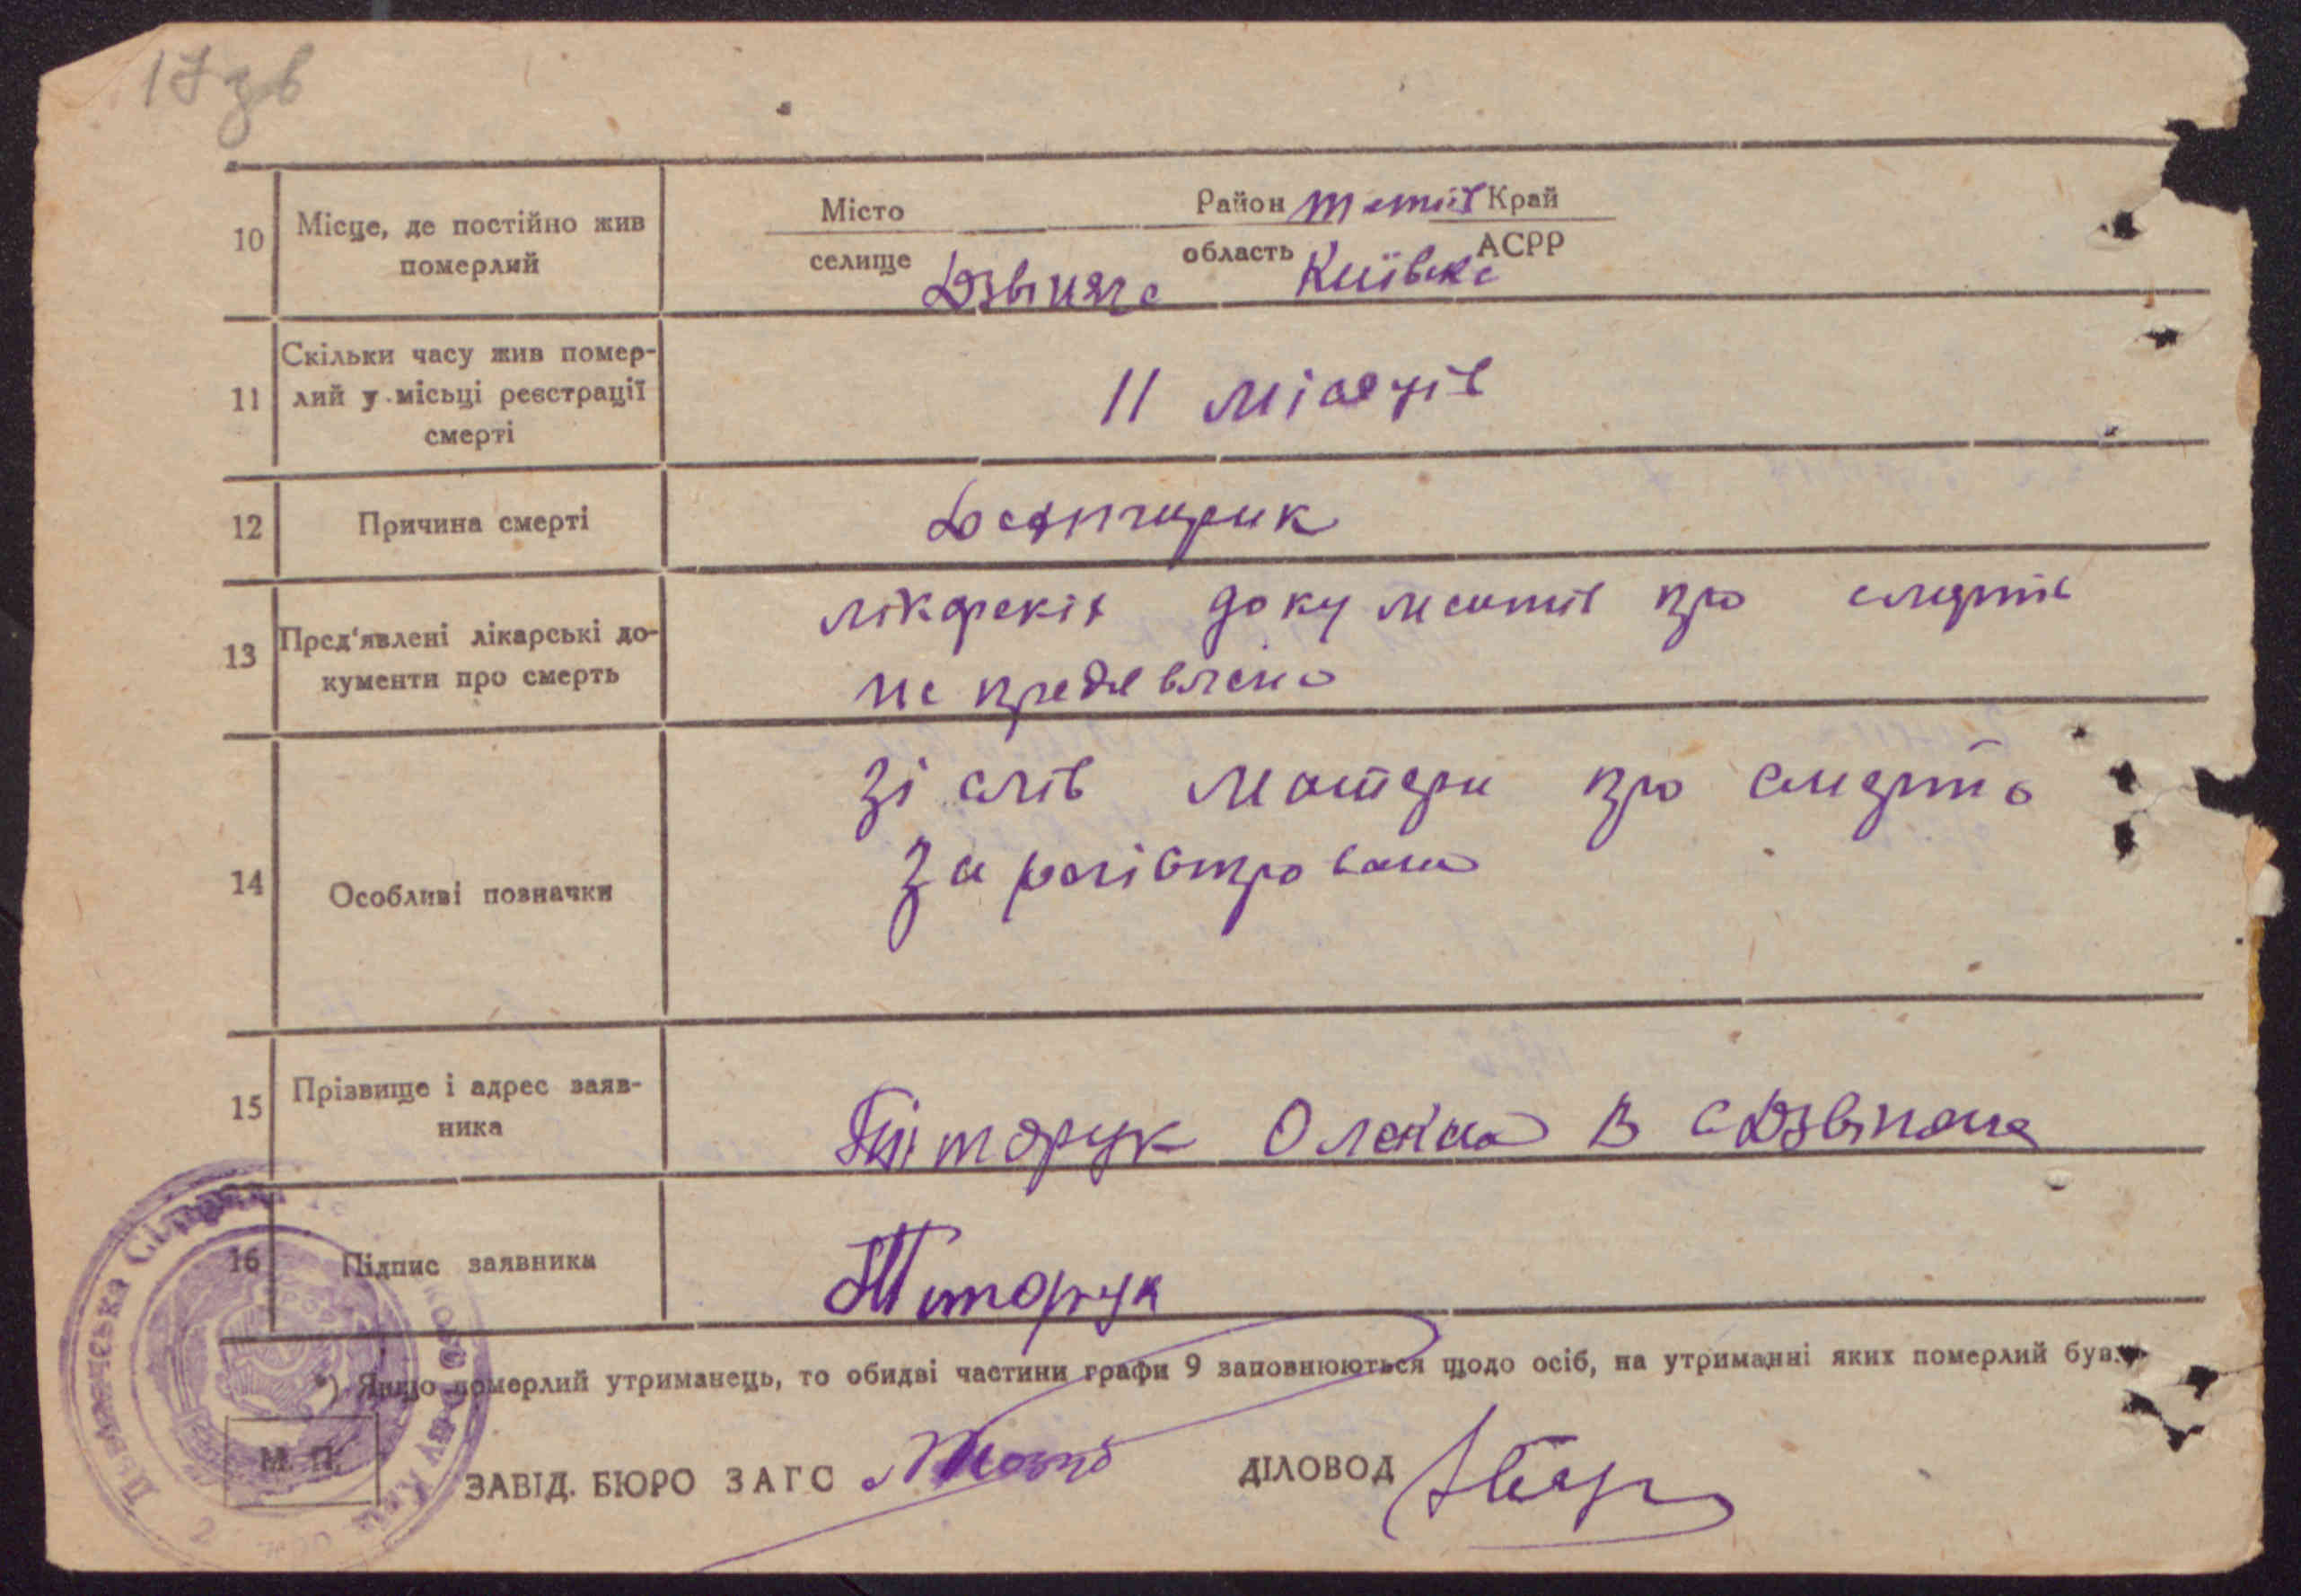 17 зв
10 Місце, де постійно жив померлий
Місто Район Тетиїв Край
селище Дзвиняче область Київська АСРР
11 Скільки часу жив помер-
лий у місьці реєстрації
смерті
11 місяців
12 Причина смерті
13 Пред'явлені лікарські до-
кументи про смерть
лікарскіх документів про смерть
не предявлено
14 Особливі позначки
зі слів матери про смерть
зарегістровано
15 Прізвище і адрес заяв-
ника
Титорук Олена В с Дзвиняча
16 Підпис заявника
Титорук
*) Якщо померлий утриманець, то обидві частини графи 9 заповнюються щодо осіб, на утриманні яких померлий був.
М. П.
ЗАВІД. БЮРО ЗАГС
ДІЛОВОД